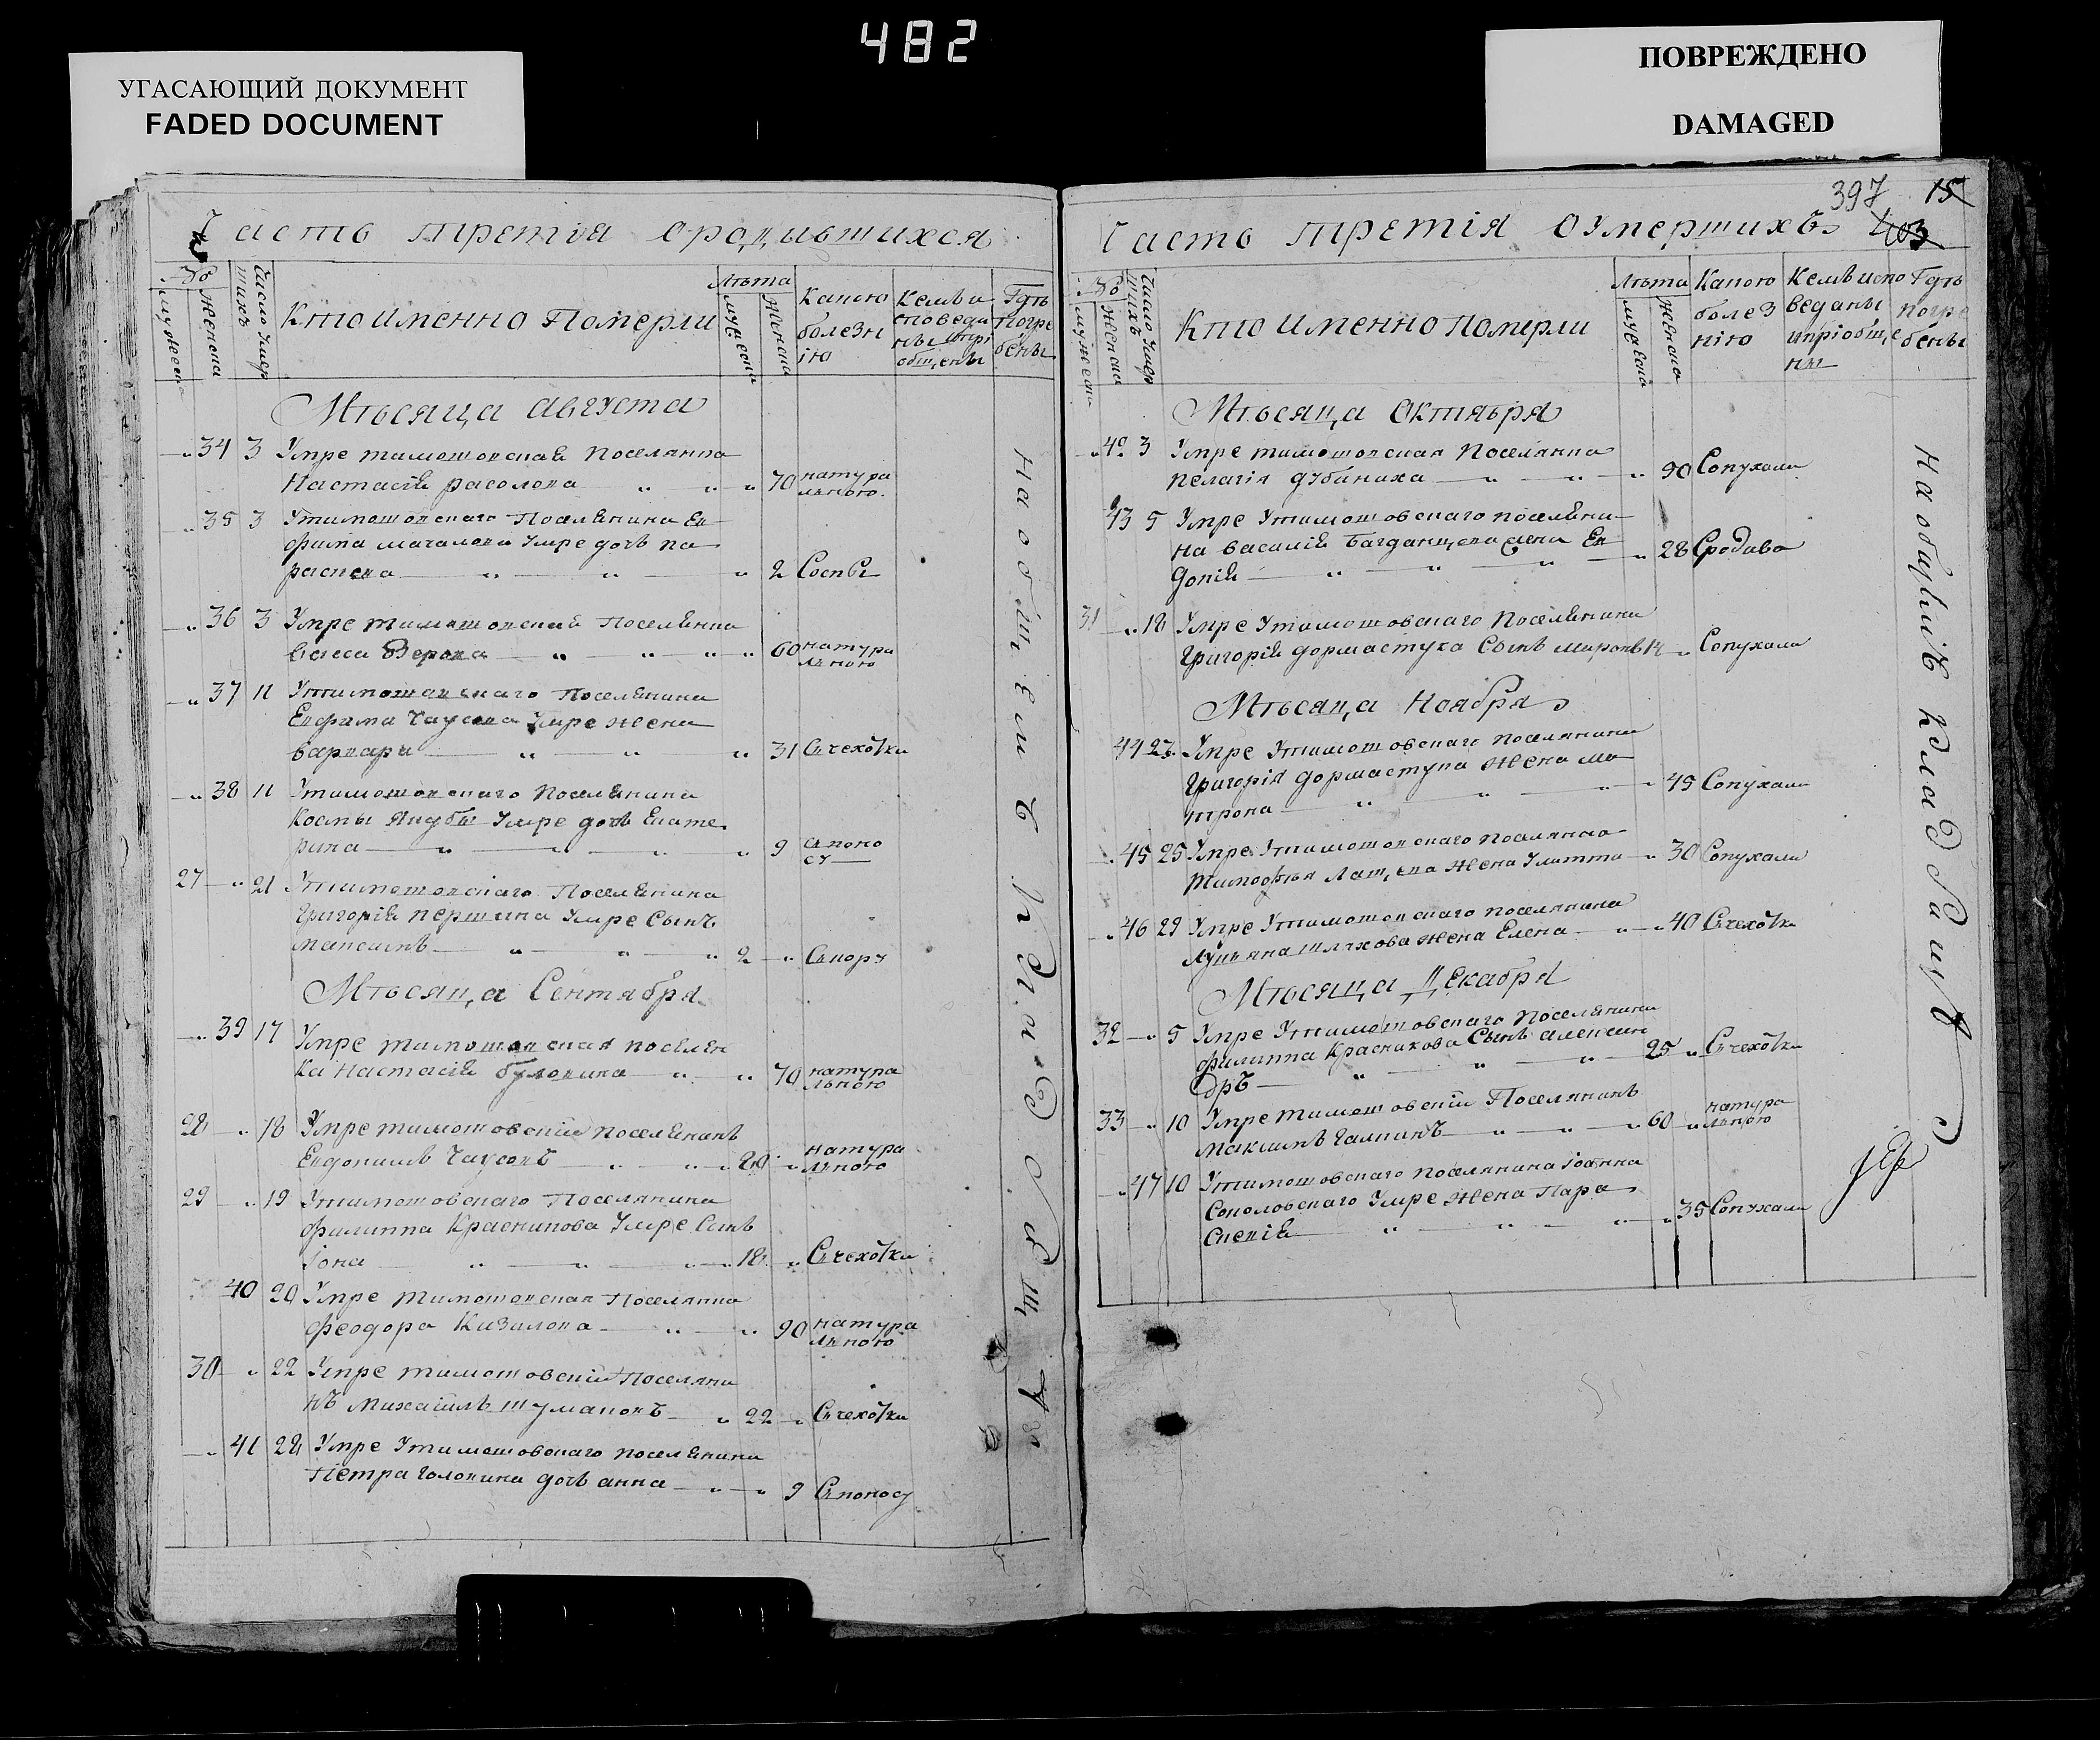 482
УГАСАЮЩИЙ ДОКУМЕНТ
FADED DOCUMENT
ПОВРЕЖДЕНО
DAMAGED
Часть третiя ородившихся
№
мужеска
женска
Число умер
шихъ
Кто именно Померли
лѣта
мужеска
женска
Какою
болезн
iю
Кемъ и
споведа
ны и прi
общены
Гдѣ
погре
бены
Мѣсяца Августа
34 3 Умре тимошовская Поселянка
Настасiя расолова 70 натура
льною.
35 3 Утимошовскаго Поселянина Ев
фима мачалова Умре дочь Па
раскева 2 Соспы
36 3 Умре тимошовская Поселянка
Васса 60 натура
льною
37 11 Утимошовскаго Поселянина
Евфима Чаусова Умре жена
варвара 31 Счехотки
38 11 Утимошовскаго Поселянина
Космы Якубы Умре дочь Екате
рина 9 Споно
су
27 21 Утимошовскаго Поселянина
Григорiя першина Умре Сынъ
максимъ 2 Скору
Мѣсяца Сентября
39 17 Умре тимошовская поселян
ка Настасiя 70 натура
льною
28 18 Умре тимошовскiй поселянинъ
Евдокимъ Чаусовъ натура
льною
29 19 Утимошовскаго Поселянина
филиппа Красникова Умре Сынъ
Iона 18 Счехотки
40 20 Умре тимошовская Поселянка
феодора Кизилова 90 натура
льною
30 22 Умре тимошовскiй Поселяни
нъ михаилъ шумаковъ 22 Счехотки
41 28 Умре Утимошовскаго поселянина
Петра головина дочь анна 9 Споносу
На общемъ кладбищѣ
397 15
403
Часть третiя оумершихъ
№
мужеска
женска
Число умер
шихъ
Кто именно померли
лѣта
мужеска
женска
Какою
болез
нiю
Кемъ испо
веданы
и прiобще
ны
Гдѣ
погре
бены
Мѣсяца Октября
42 3 Умре тимошовская Поселянка
пелагiя дубиниха 90 Сопухали
43 5 Умре Утимошовскаго поселяни
на василiя Багданцева жена Ев
докiя 28 Сродива
31 18 Умре Утимошовскаго Поселянина
Григорiя дормастука Сынъ миронъ 14 Сопухали
Мѣсяца Ноября
44 23 Умре Утимошовскаго поселянина
Григорiя дормастука жена ма
трона 45 Сопухали
45 25 Умре Утимошовскаго поселянина
Тимофѣя жена Улитта 30 Сопухали
46 29 Умре Утимошовскаго поселянина
Лукьяна шляхова жена Елена 40 Счехотки
Мѣсяца Декабря
32 5 Умре Утимошовскаго поселянина
филиппа Красникова Сынъ алексан
дръ 25 Счехотки
33 10 Умре тимошовскiй Поселянинъ
Максимъ Галкинъ 60 натура
льною
47 10 Утимошовскаго поселянина Iоанна
Соколовскаго Умре жена Пара
скевiя 35 Сопухали
На общiемъ кладбищѣ